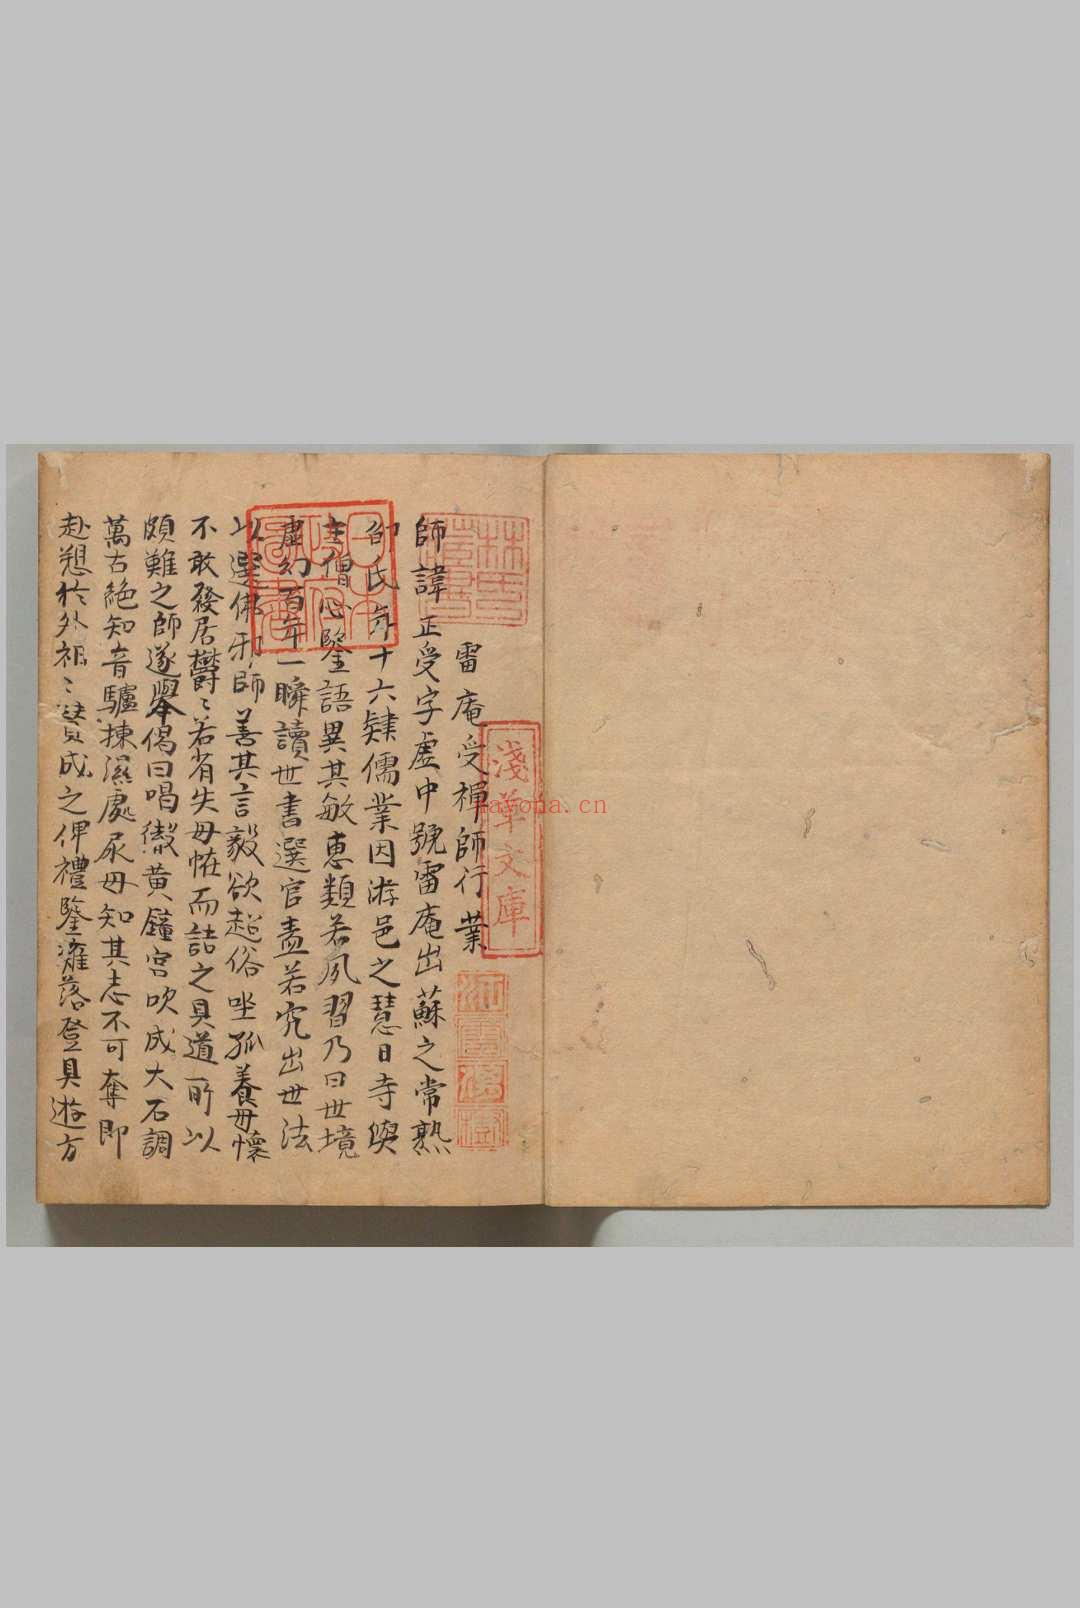 雷庵受禪師行業
師諱正受字虛中號雷庵出蘇之常熟
邵氏年十六肄儒業因游邑之慧日寺與
主僧心鑒語異其敏惠類若夙習乃曰世境
虛幻百年一瞬讀世書選官盍若究出世法
以選佛邪師善其言毅欲超俗坐孤養毋懷
不敢發居欝〻若有失毋恠而詰之具道所以
頗難之師遂舉偈曰唱徹黃鐘宮吹成大石調
萬古絕知音驢揀濕處尿毋知其志不可奪即
赴懇於外祖〻贊成之俾禮鑒灉落登具遊方
林氏藏書
日本政府圖書
淺草文庫
nayona.cn